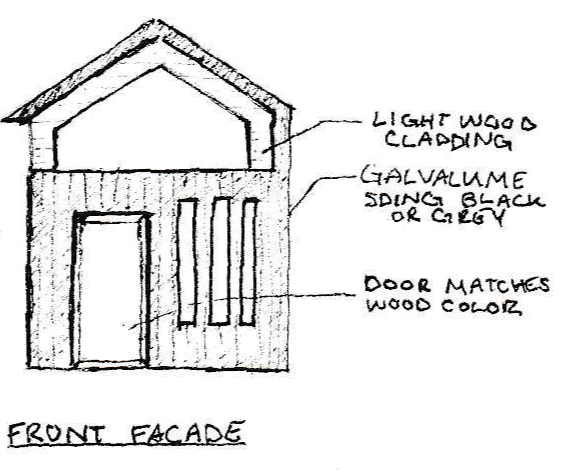 LIGHT WOOD
CLADDING
GALVALUME
SDING BLACK
OR GREY
DOOR MATCHES
WOOD COLOR
FRONT FACADE